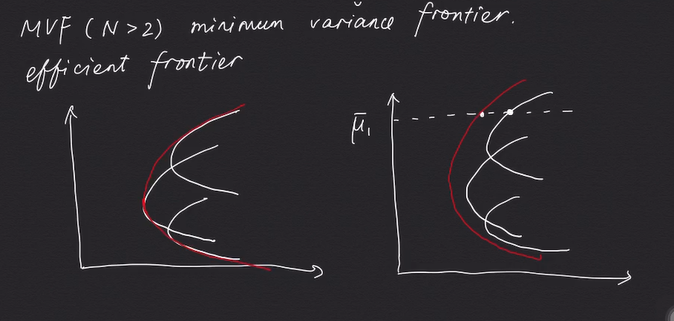 MVF (N>2) minimum variance frontier.
efficient frontier
μ̄₁